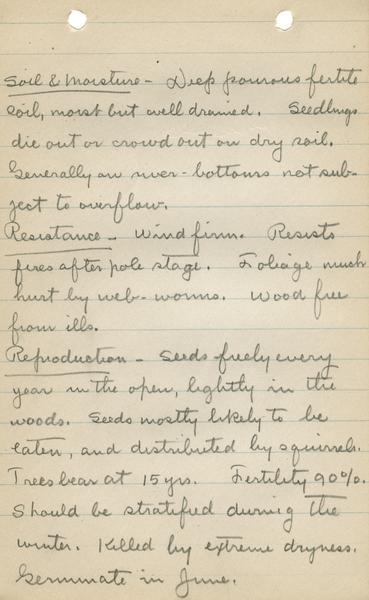 Soil & Moisture - Deep pourous fertile
soil, moist but well drained. Seedlings
die out or crowd out on dry soil.
Generally on river-bottoms not sub-
ject to overflow.
Resistance - Wind firm. Resists
fires after pole stage. Foliage much
hurt by web-worms. Wood free
from ills.
Reproduction - Seeds freely every
year in the open, lightly in the
woods. Seeds mostly likely to be
eaten, and distributed by squirrels.
Trees bear at 15 yrs. Fertility 90%.
Should be stratified during the
winter. Killed by extreme dryness.
Germinate in June.